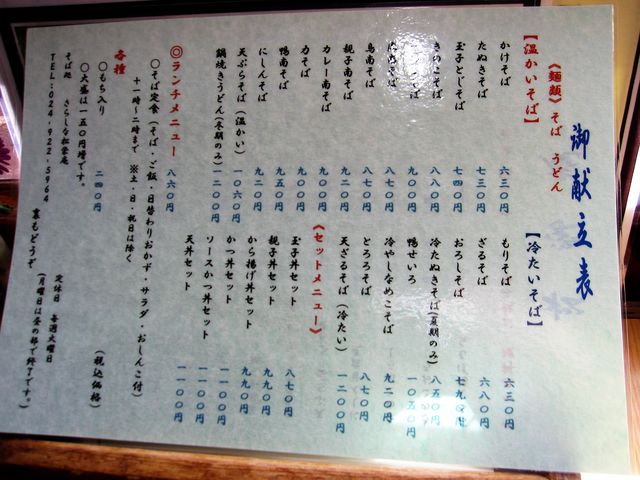 御献立表
《麺類》そば うどん
【温かいそば】
かけそば 六三〇円
たぬきそば 七三〇円
玉子とじそば 七四〇円
きのこそば 八八〇円
八七〇円
八七〇円
鳥南そば 八七〇円
親子南そば 九二〇円
カレー南そば 九〇〇円
力そば 九〇〇円
鴨南そば 九五〇円
にしんそば 九二〇円
天ぷらそば(温かい) 一〇六〇円
鍋焼きうどん(冬期のみ) 一二〇〇円
【冷たいそば】
もりそば 六三〇円
ざるそば 六八〇円
おろしそば 七九〇円
冷たぬきそば(夏期のみ) 八五〇円
鴨せいろ 一〇五〇円
冷やしなめこそば 九二〇円
とろろそば 八七〇円
天ざるそば(冷たい) 一二〇〇円
《セットメニュー》
玉子丼セット 八七〇円
親子丼セット 九七〇円
から揚げ丼セット 九九〇円
かつ丼セット 一一〇〇円
ソースかつ丼セット 一一〇〇円
天丼セット 一一〇〇円
◎ランチメニュー 八六〇円
〇そば定食(そば・ご飯・日替わりおかず・サラダ・おしんこ付)
十一時〜二時まで ※土・日・祝日は除く
各種
〇もち入り 二四〇円
〇大盛は一五〇円増です。 (税込価格)
そば処 さらしな松栄庵 定休日 毎週火曜日
TEL:024-922-5964 (月曜日は昼の部で終了です。)
裏もどうぞ